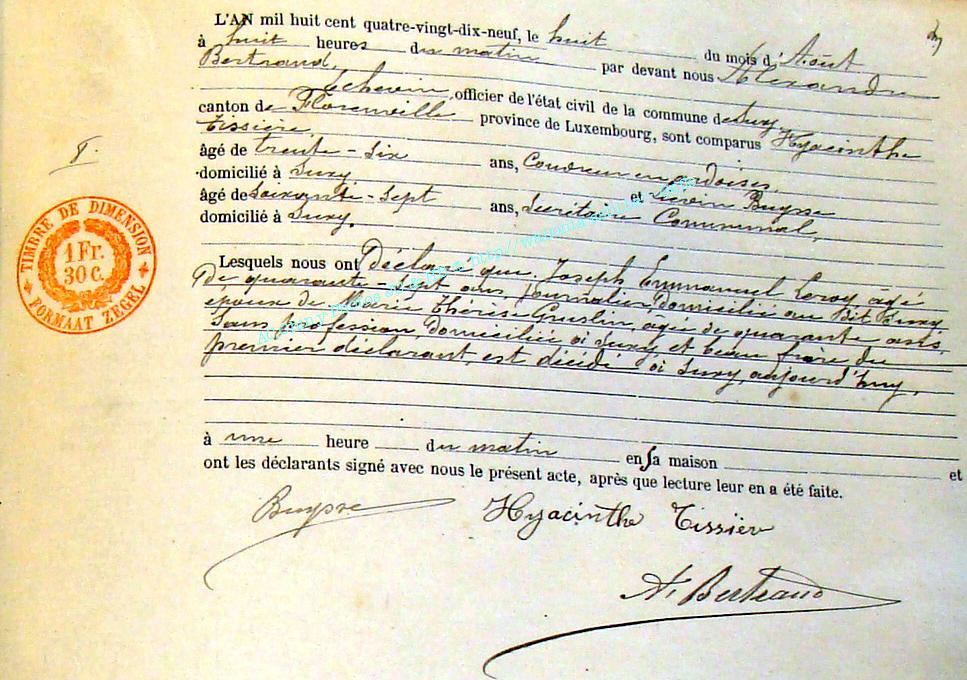 L'AN mil huit cent quatre-vingt-dix-neuf, le huit du mois d'Août
à huit heures du matin par devant nous Alexandre
Bertrand,
Echevin, officier de l'état civil de la commune de Suxy
canton de Florenville province de Luxembourg, sont comparus Hyacinthe
Tissière,
âgé de trente-six ans, Couvreur en ardoises,
domicilié à Suxy et Livin Buysse
âgé de Soixante-Sept ans, Secrétaire Communal,
domicilié à Suxy.
Lesquels nous ont Déclaré que Joseph Emmanuel Leroy, âgé
de quarante-sept ans, journalier, domicilié au dit Suxy,
époux de Marie Thérèse Guislin, âgée de quarante ans,
Sans profession, domiciliée à Suxy, et beau frère du
premier déclarant, est décédé à Suxy, aujourd'huy,
à une heure du matin en sa maison et
ont les déclarants signé avec nous le présent acte, après que lecture leur en a été faite.
Buysse Hyacinthe Tissièr
A. Bertrand
TIMBRE DE DIMENSION
1 Fr.
30 C.
FORMAAT ZEGEL